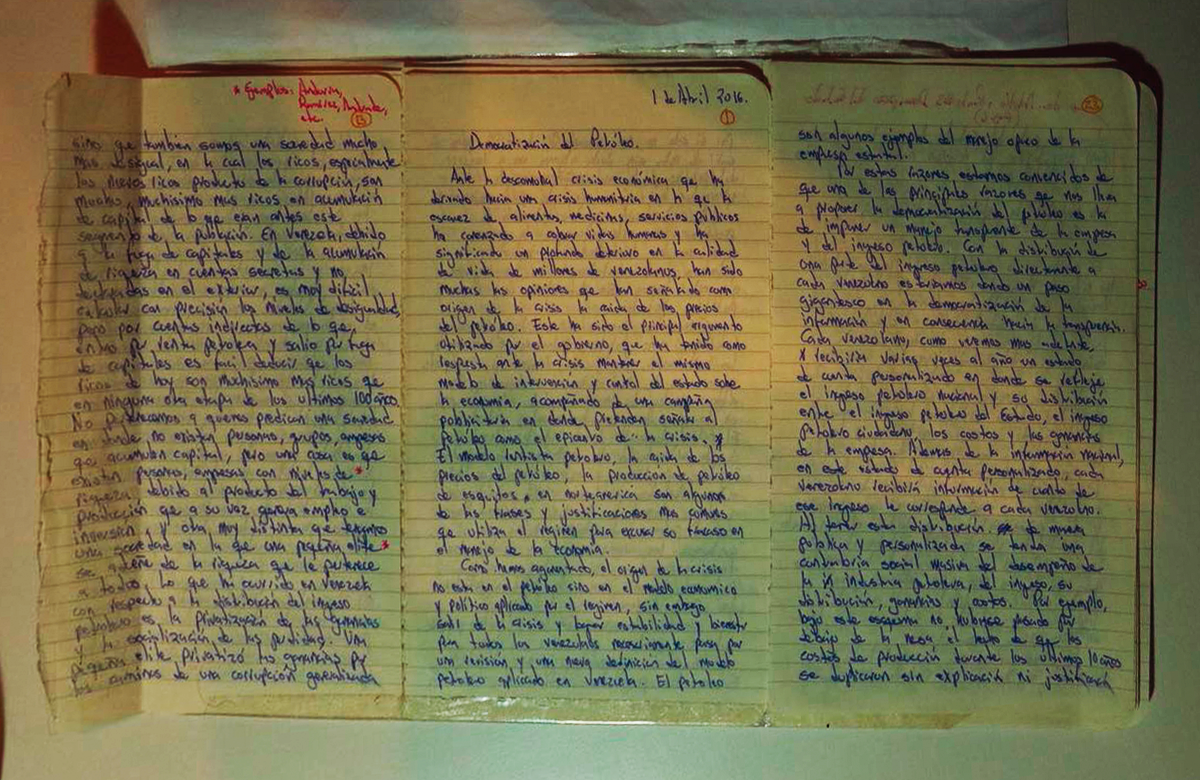 * Ejemplos: Andorra,
Ramírez, Andrade,
etc.
13
sino que tambien somos una sociedad mucho
mas desigual, en la cual los ricos, especialmente
los nuevos ricos producto de la corrupción, son
mucho, muchisimo mas ricos en acumulación
de capital de lo que eran antes este
segmento de la población. En Venezuela, debido
a la fuga de capitales y de la acumulación
de riqueza en cuentas secretas y no
declaradas en el exterior, es muy difícil
calcular con precisión los niveles de desigualdad,
pero por cuentas indirectas de lo que
entro por venta petrolera y salio por fuga
de capitales es facil deducir que los
ricos de hoy son muchisimo mas ricos que
en ninguna otra etapa de los ultimos 100 años.
No pertenecemos a quienes predican una sociedad
en donde no existan personas, grupos, empresas
que acumulen capital, pero una cosa es que
existan personas, empresas con niveles de *
riqueza debido al producto del trabajo y
producción que a su vez genera empleo e
inversion y otra muy distinta que tengamos
una sociedad en la que una pequeña elite *
se adueñe de la riqueza que le pertenece
a todos. Lo que ha ocurrido en Venezuela
con respecto a la distribución del ingreso
petrolero es la privatización de las ganancias
y la socialización de las perdidas. Una
pequeña elite privatizó las ganancias por
los caminos de una corrupción generalizada
1 de Abril 2016.
1
Democratización del Petróleo.
Ante la descomunal crisis económica que ha
derivado hacia una crisis humanitaria en la que la
escasez de alimentos, medicinas, servicios públicos
ha comenzado a cobrar vidas humanas y ha
significado un profundo deterioro en la calidad
de vida de millones de venezolanos, han sido
muchas las opiniones que han señalado como
origen de la crisis la caida de los precios
del petróleo. Este ha sido el principal argumento
utilizado por el gobierno, que ha tenido como
respuesta ante la crisis mantener el mismo
modelo de intervención y control del estado sobre
la economía, acompañado de una campaña
publicitaria en donde pretenden señalar al
petróleo como el epicentro de la crisis.
El modelo rentista petrolero, la caida de los
precios del petróleo, la produccion de petróleo
de esquitos, en norteamerica son algunas
de las frases y justificaciones mas comunes
que utiliza el regimen para excusar su fracaso en
el manejo de la economía.
Como hemos argumentado, el origen de la crisis
no esta en el petróleo sino en el modelo economico
y político aplicado por el regimen, sin embargo
salir de la crisis y lograr estabilidad y bienestar
para todos los venezolanos necesariamente pasa por
una revisión, y una nueva definicion del modelo
petrolero aplicado en Venezuela. El petroleo
23
son algunos ejemplos del manejo opaco de la
empresa estatal.
Por estas razones estamos convencidos de
que una de las principales razones que nos lleva
a proponer la democratización del petróleo es la
de imponer un manejo transparente de la empresa
y del ingreso petrolero. Con la distribución de
una parte del ingreso petrolero directamente a
cada venezolano estariamos dando un paso
gigantesco en la democratización de la
información y en consecuencia hacia la transparencia.
Cada venezolano, como veremos mas adelante,
recibiria varias veces al año un estado
de cuenta personalizado en donde se refleje
el ingreso petrolero nacional y su distribución
entre el ingreso petrolero del Estado, el ingreso
petrolero ciudadano, los costos y las ganancias
de la empresa. Ademas de la información nacional,
en este estado de cuenta personalizado, cada
venezolano recibirá información de cuanto de
ese ingreso le corresponde a cada venezolano.
Al tener esta distribución de manera
publica y personalizada se tendra una
contraloria social masiva del desempeño de
la industria petrolera, del ingreso, su
distribución, ganancias y costos. Por ejemplo,
bajo este esquema no hubiese pasado por
debajo de la mesa el hecho de que los
costos de producción durante los últimos 10 años
se duplicaron sin explicación ni justificación